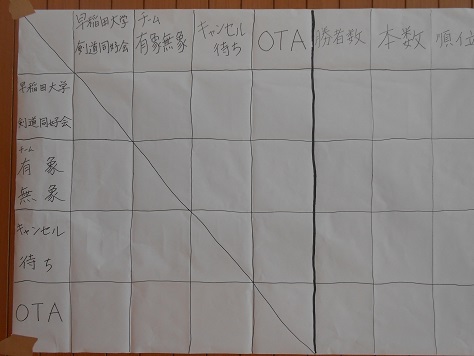 早稲田大学
剣道同好会
チーム
有象無象
キャンセル
待ち
OTA
勝者数
本数
順位
早稲田大学
剣道同好会
チーム
有象
無象
キャンセル
待ち
OTA